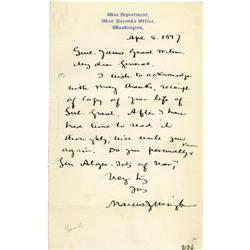 War Department,
War Records Office,
Washington,
Apr 8. 1897
Genl. James Grant Wilson
My dear General.
I wish to acknowledge
with many thanks, receipt
of copy of your life of
Genl. Grant. After I have
had time to read it
thoroughly, will write you
again. Do you personally know
Gen Alger- Secty of War,
Very try
Yrs
Marcus J. Wright